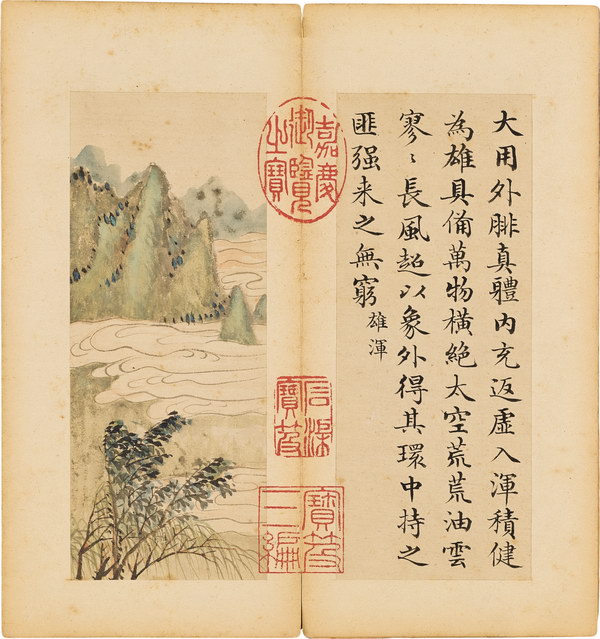 大用外腓真體内充返虛入渾積健
為雄具俻萬物橫絶太空荒荒油雲
寥〻長風超以象外得其環中持之
匪强来之無窮
雄渾
嘉慶
御覽
之寶
石渠
寶笈
寶笈
三編